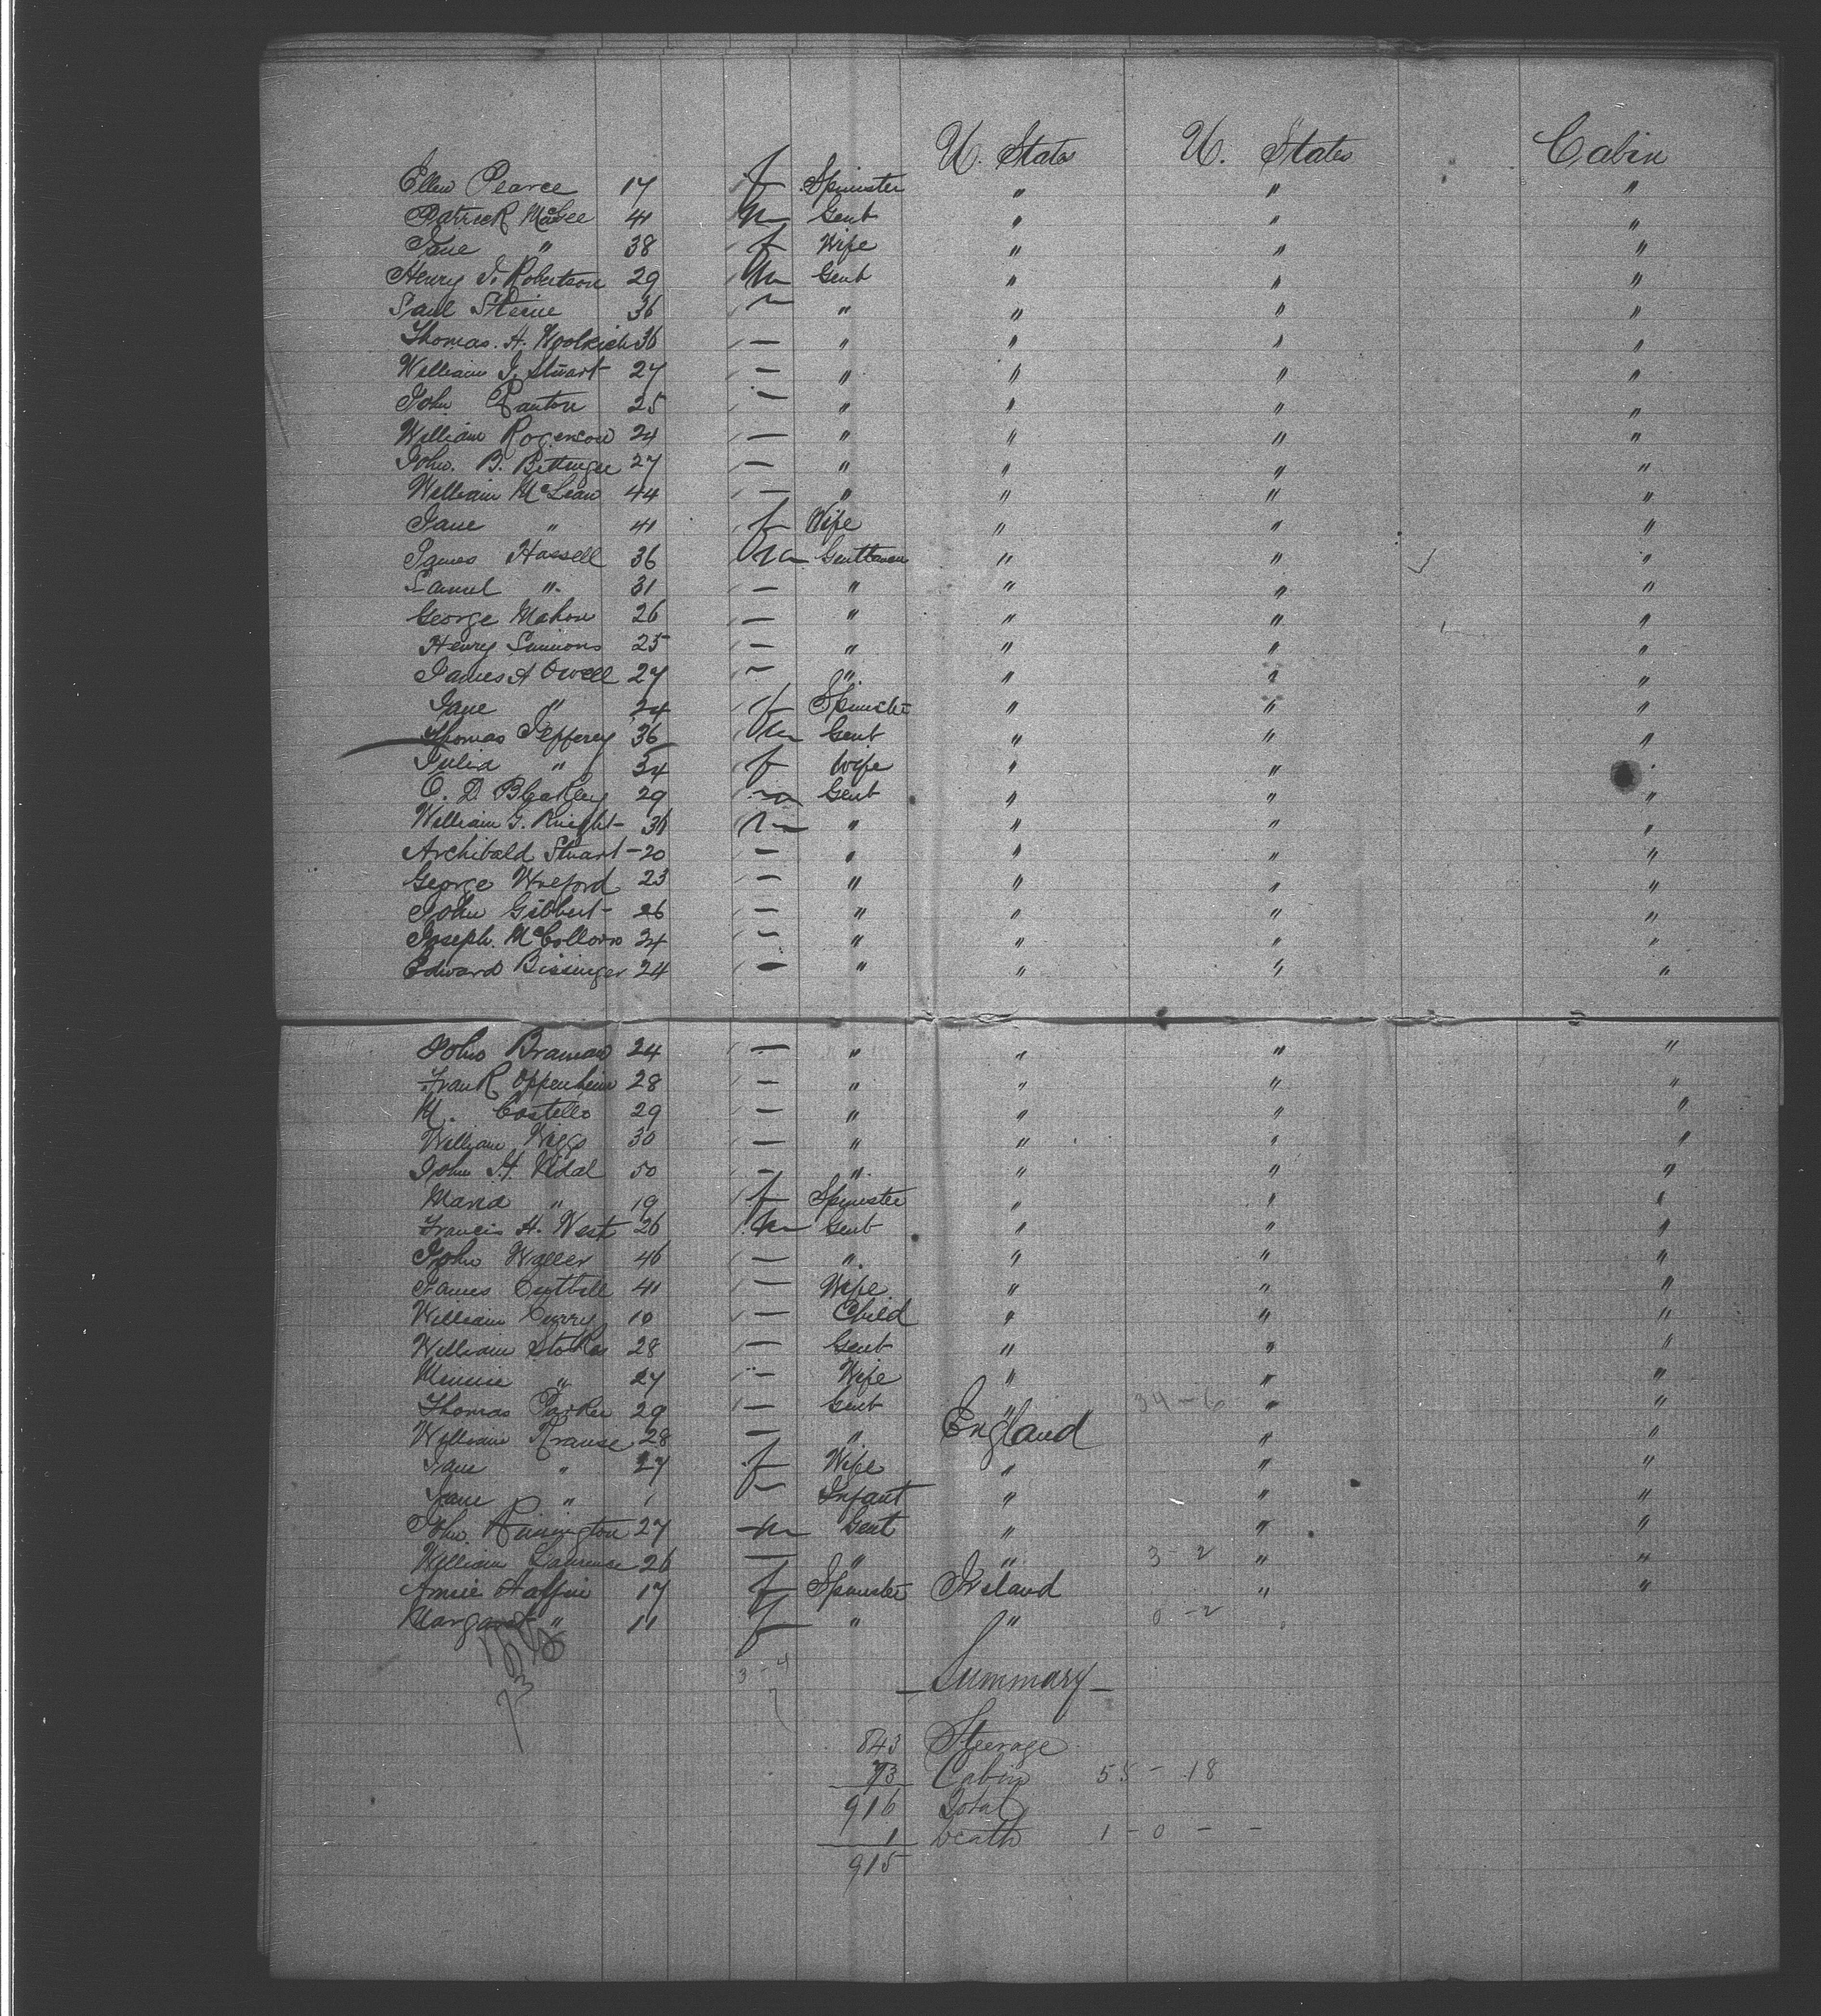 U. States U. States Cabin
Ellen Pearce 17 f Spinster " " "
Patrick McGee 41 m Gent " " "
Jane " 38 f Wife " " "
Henry J. Robertson 29 m Gent " " "
Saul Steine 36 " " " "
Thomas. H. Woolrich 36 — " " " "
William J. Stuart 27 — " " " "
John Panton 25 — " " " "
William Rogerson 24 — " " " "
John. B. Bettinger 27 — " " " "
William McLean 44 — " " " "
Jane " 41 f Wife " " "
James Hassell 36 m Gentleman " " "
Samuel " 31 — " " " "
George Mahon 26 — " " " "
Henry Simmons 25 — " " " "
James A Orvell 27 — " " " "
Jane " 24 f Spinster " " "
Thomas Jefferey 36 m Gent " " "
Julia " 34 f Wife " " "
O. D. Bleakley 29 m Gent " " "
William G. Knight 36 m " " " "
Archibald Stuart 20 — " " " "
George Wreford 23 — " " " "
John Gibbert 26 — " " " "
Joseph. McCollom 24 — " " " "
Edward Bissinger 24 — " " " "
John Braman 24 — " " " "
Frank Oppenheim 28 — " " " "
M. Costello 29 — " " " "
William Wiggs 30 — " " " "
John H. Vidal 50 — " " " "
Maria " 19 f Spinster " " "
Francis H. West 26 m Gent " " "
John Waller 46 — " " " "
James Cuthill 41 — Wife " " "
William Curry 10 — Child " " "
William Stokes 28 — Gent " " "
Minnie " 27 — Wife " " "
Thomas Parker 29 — Gent " 34 - 6 " "
William Krause 28 — " England " "
Jane " 27 f Wife " " "
Jane " 1 Infant " " "
John. Rinington 27 m Gent " " "
William Laurence 26 — " " 3 - 2 " "
Annie Halfin 17 f Spinster Ireland " "
Margaret " 11 f " " 0 - 2
73
3 - 4
Summary
843 Steerage
73 Cabin 55 - 18
916 Total
1 Death 1 - 0 - -
915